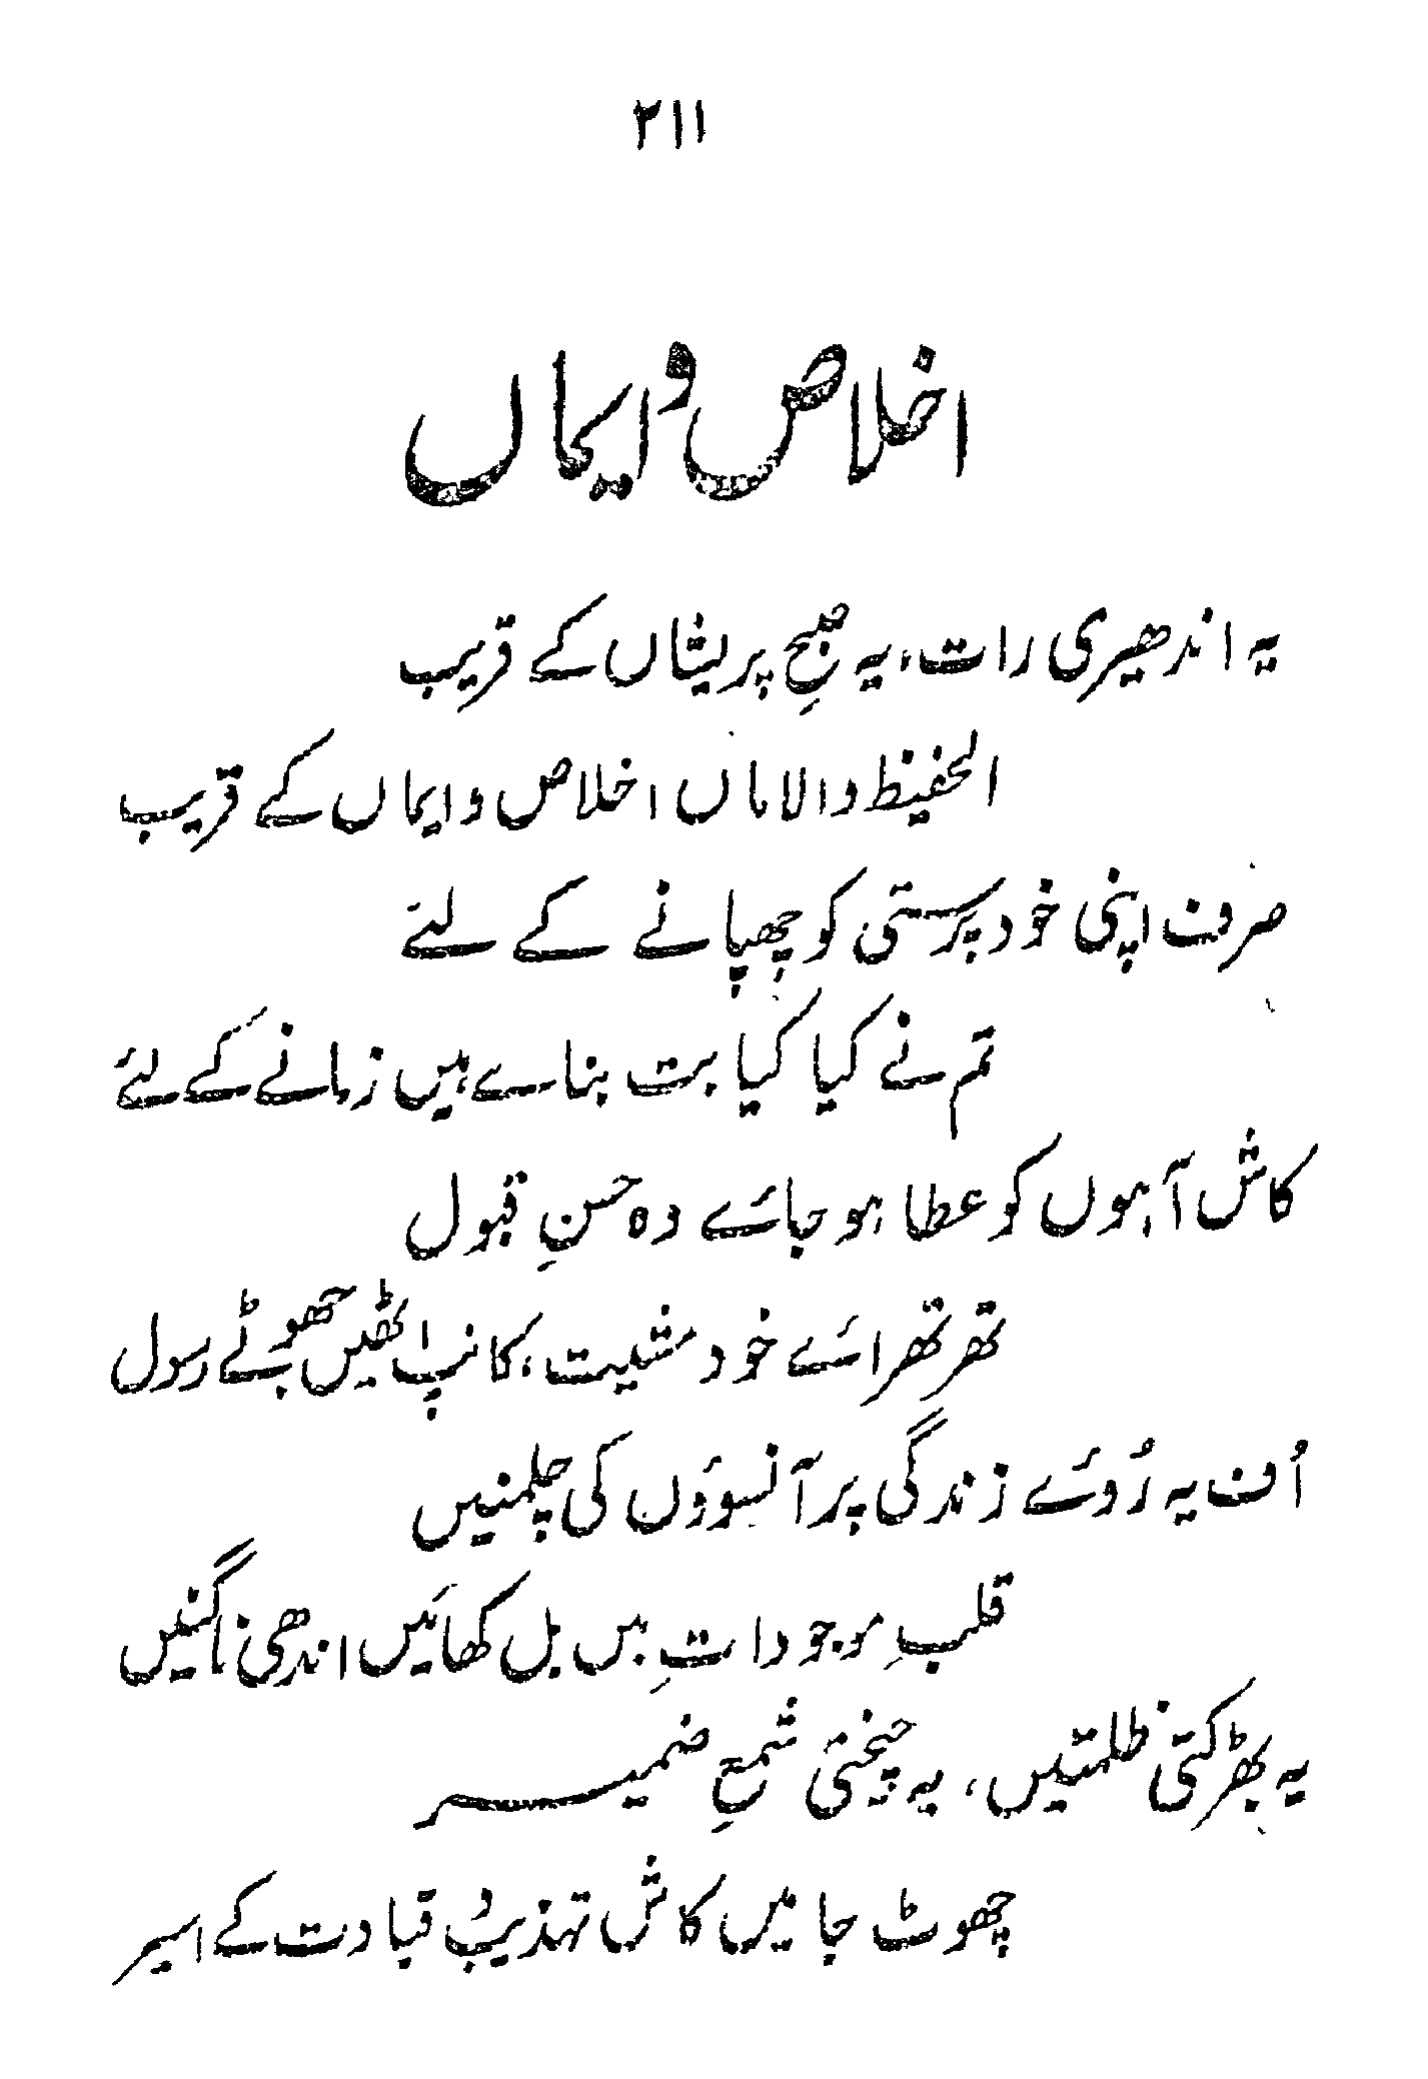 ۲۱۱
اخلاص و ایماں
یہ اندھیری رات، یہ صبحِ پریشاں کے قریب
الحفیظ والاماں اخلاص و ایماں کے قریب
صرف اپنی خود پرستی کو چھپانے کے لئے
تم نے کیا کیا بت بنائے ہیں زمانے کے لئے
کاش آہوں کو عطا ہو جائے وہ حسنِ قبول
تھرتھرائے خود مشیت، کانپ اٹھیں جھوٹے رسول
اُف یہ رُوئے زندگی پر آنسوؤں کی چلمنیں
قلبِ موجودات میں بل کھائیں اندھی ناگنیں
یہ بھڑکتی ظلمتیں، یہ چیختی شمعِ ضمیر
چھوٹ جائیں کاش تہذیب و قیادت کے اسیر